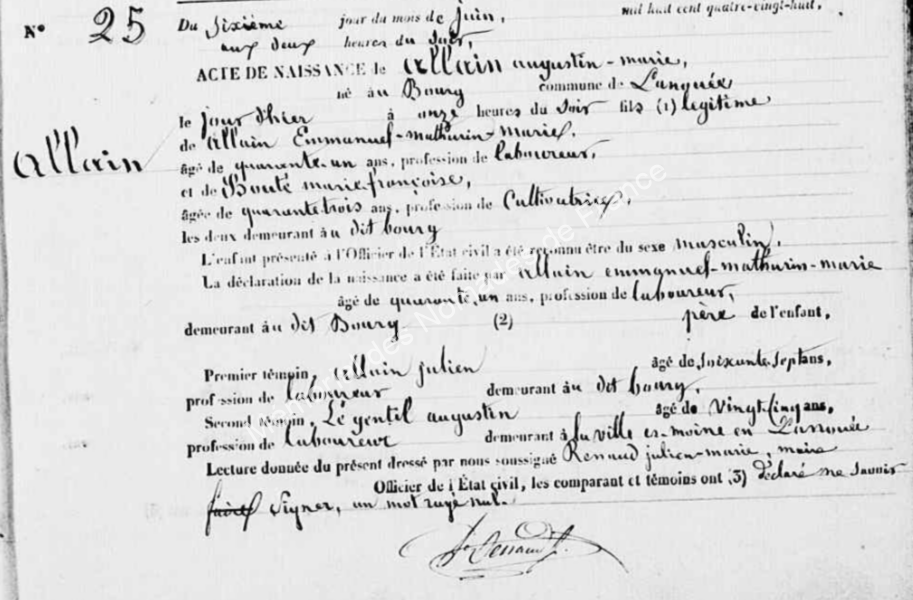 N° 25 Du Sixième jour du mois de Juin, mil huit cent quatre-vingt-huit,
aux deux heures du Soir,
ACTE DE NAISSANCE de Allain augustin-marie,
né au Bourg commune de Lanouée
le jour d'hier à onze heures du Soir fils (1) légitime
Allain
de Allain Emmanuel-mathurin-marie,
âgé de quarante-un ans, profession de laboureur,
et de Bouté marie-françoise,
âgée de quarante trois ans, profession de Cultivatrice,
les deux demeurant au dit bourg
L'enfant présenté à l'Officier de l'État civil a été reconnu être du sexe masculin,
La déclaration de la naissance a été faite par allain emmanuel-mathurin-marie
âgé de quarante un ans, profession de laboureur,
demeurant au dit Bourg (2) père de l'enfant.
Premier témoin, allain julien âgé de Soixante Sept ans,
profession de laboureur demeurant au dit bourg,
Second témoin, Le gentil augustin âgé de Vingt-Cinq ans,
profession de laboureur demeurant à la ville es-moine en Lanouée
Lecture donnée du présent dressé par nous soussigné Renaud julien-marie, maire
Officier de l'État civil, les comparant et témoins ont (3) déclaré ne Savoir
faire Signer, un mot rayé nul.
Renaud
Mémoire des Hommes de France